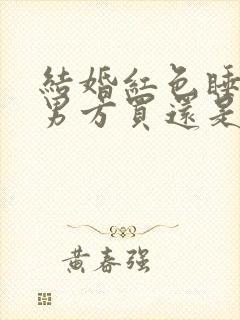 結婚紅色睡
男方買還是
黃春強